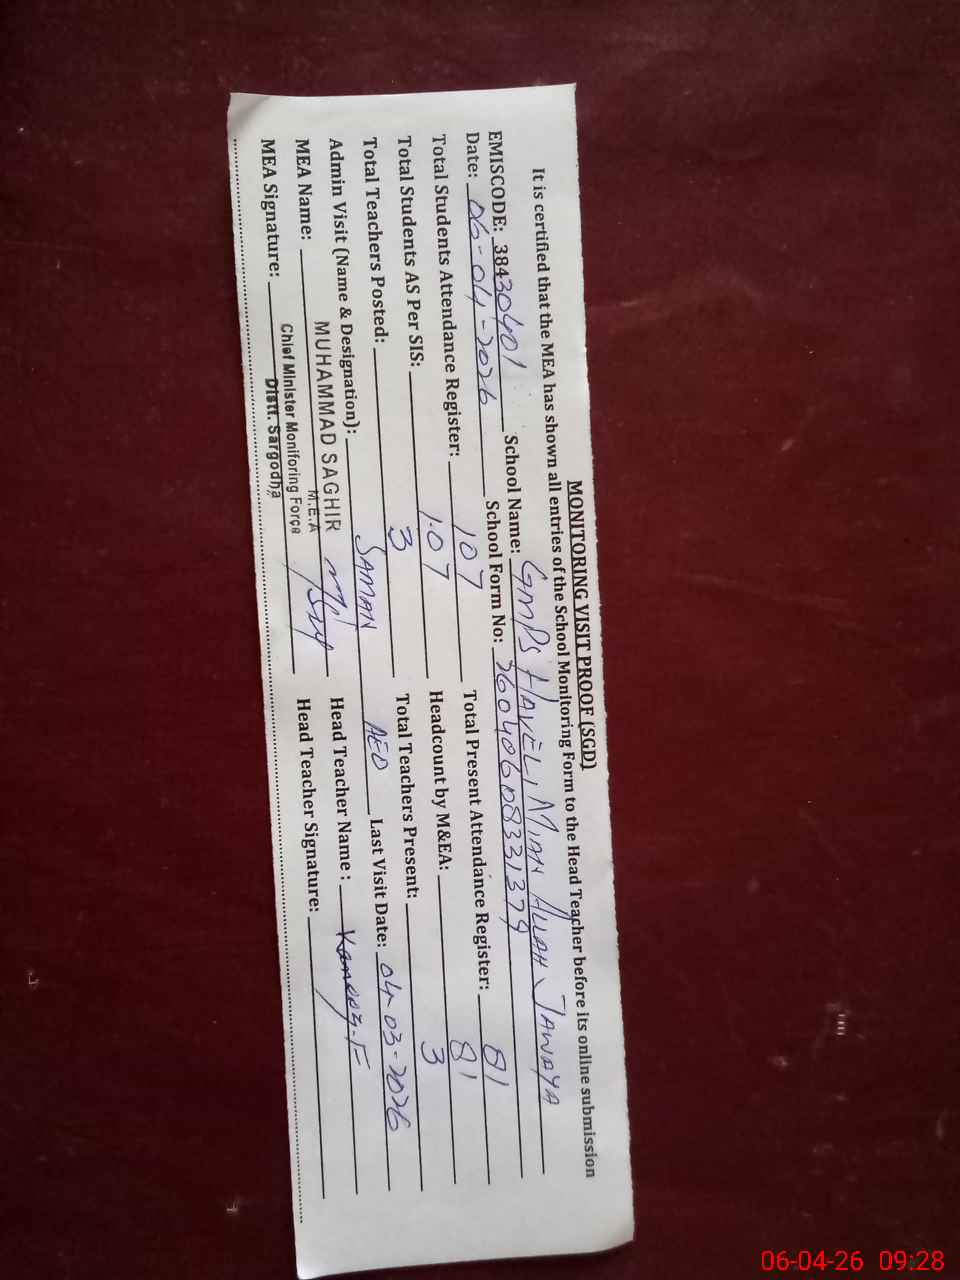 MONITORING VISIT PROOF (SGD)
It is certified that the MEA has shown all entries of the School Monitoring Form to the Head Teacher before its online submission
EMISCODE: 38430401 School Name: GMPS HAVELI MIAN ALLAH JAWAYA
Date: 06-04-2026 School Form No: 36040608331379
Total Students Attendance Register: 107 Total Present Attendance Register: 81
Total Students AS Per SIS: 107 Headcount by M&EA: 81
Total Teachers Posted: 3 Total Teachers Present: 3
Admin Visit (Name & Designation): SAMAN AEO Last Visit Date: 04-03-2026
MEA Name: MUHAMMAD SAGHIR Head Teacher Name :
M.E.A
Chief Minister Moniforing Force
MEA Signature: Distt. Sargodha Head Teacher Signature:
06-04-26 09:28